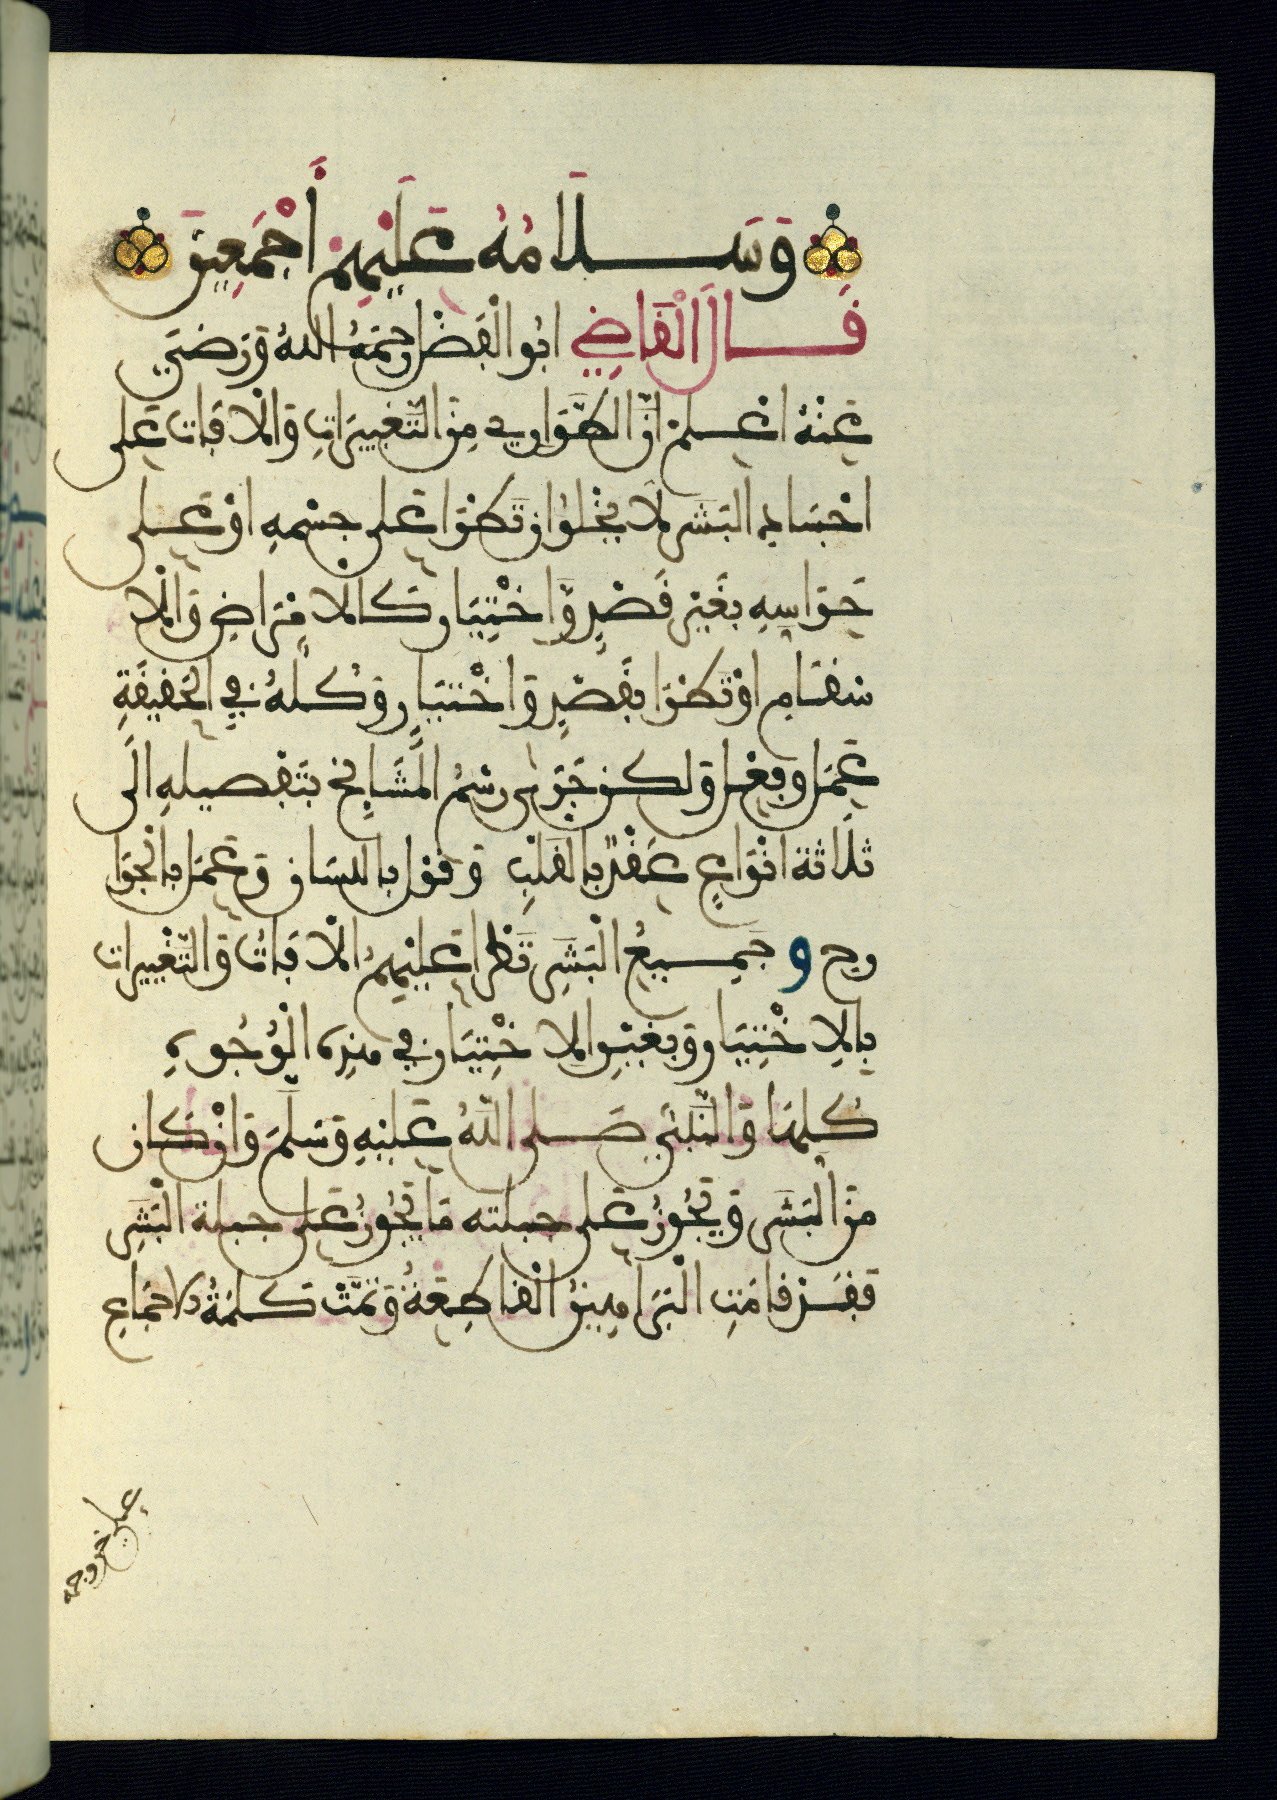 وَسَلَامُهُ عَلَيْهِمْ أَجْمَعِينَ
قَالَ الْقَاضِي ابُو الْفَضْل رحِمَهُ اللهُ وَرَضيَ
عَنْهُ اعْلمْ انَّ الطَّوَارِيَ مِنَ التَّغْيِيرَاتِ وَالْآفَات عَلى
اجْسَادِ الْبَشَرِ لَا يَخْلُوا ان تَطْرَا عَلى جِسْمِهِ اوْ عَلى
حَوَاسِهِ بغَيْرِ قَصْدٍ وَاخْتِيَارٍ كَالامْرَاضِ وَالْا
سْقَامِ اوْ تَطْرَا بقَصْدٍ وَاخْتيَارٍ وَكُلُّهُ فِي الْحَقِيقَةِ
عَمَل وفِعْل وَلكن جَرَى رسْمُ الْمَشَايِخ بتَفْصيلهِ الَى
ثلَاثَة انْوَاعٍ عَقْدٌ بالقَلْبِ وَقَوْل باللسَان وَعَمَل بالْجَوَا
رح وجَمِيعُ الْبَشَرِ تَطْرَا عَلَيْهِمُ الْآفَاتُ وَالتَّغْيِيرات
بالِاخْتِيَار وَبغَيْرِ الِاخْتِيَار فِي هَذِهِ الْوُجُوهِ
كُلِّهَا وَالنَّبِيُّ صَلى اللَّهُ عَلَيْهِ وَسَلَّمَ وَانْ كَان
منَ الْبَشَرِ وَيَجُوزُ عَلى جبلته مَا يَجُوزُ عَلى جبلة الْبَشَرِ
فَقَدْ قامَتِ الْبَرَاهِينُ الْقاطِعَةُ وَتَمَّتْ كَلمَةُ الاجْمَاعِ
على خروجه